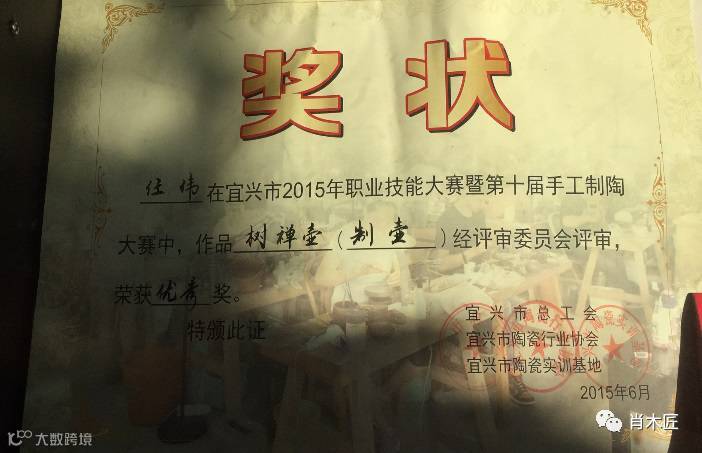 奖状
任伟在宜兴市2015年职业技能大赛暨第十届手工制陶
大赛中，作品树禅壶（制壶）经评审委员会评审，
荣获优秀奖。
特颁此证
宜兴市总工会
宜兴市陶瓷行业协会
宜兴市陶瓷实训基地
2015年6月
肖木匠
大数跨境